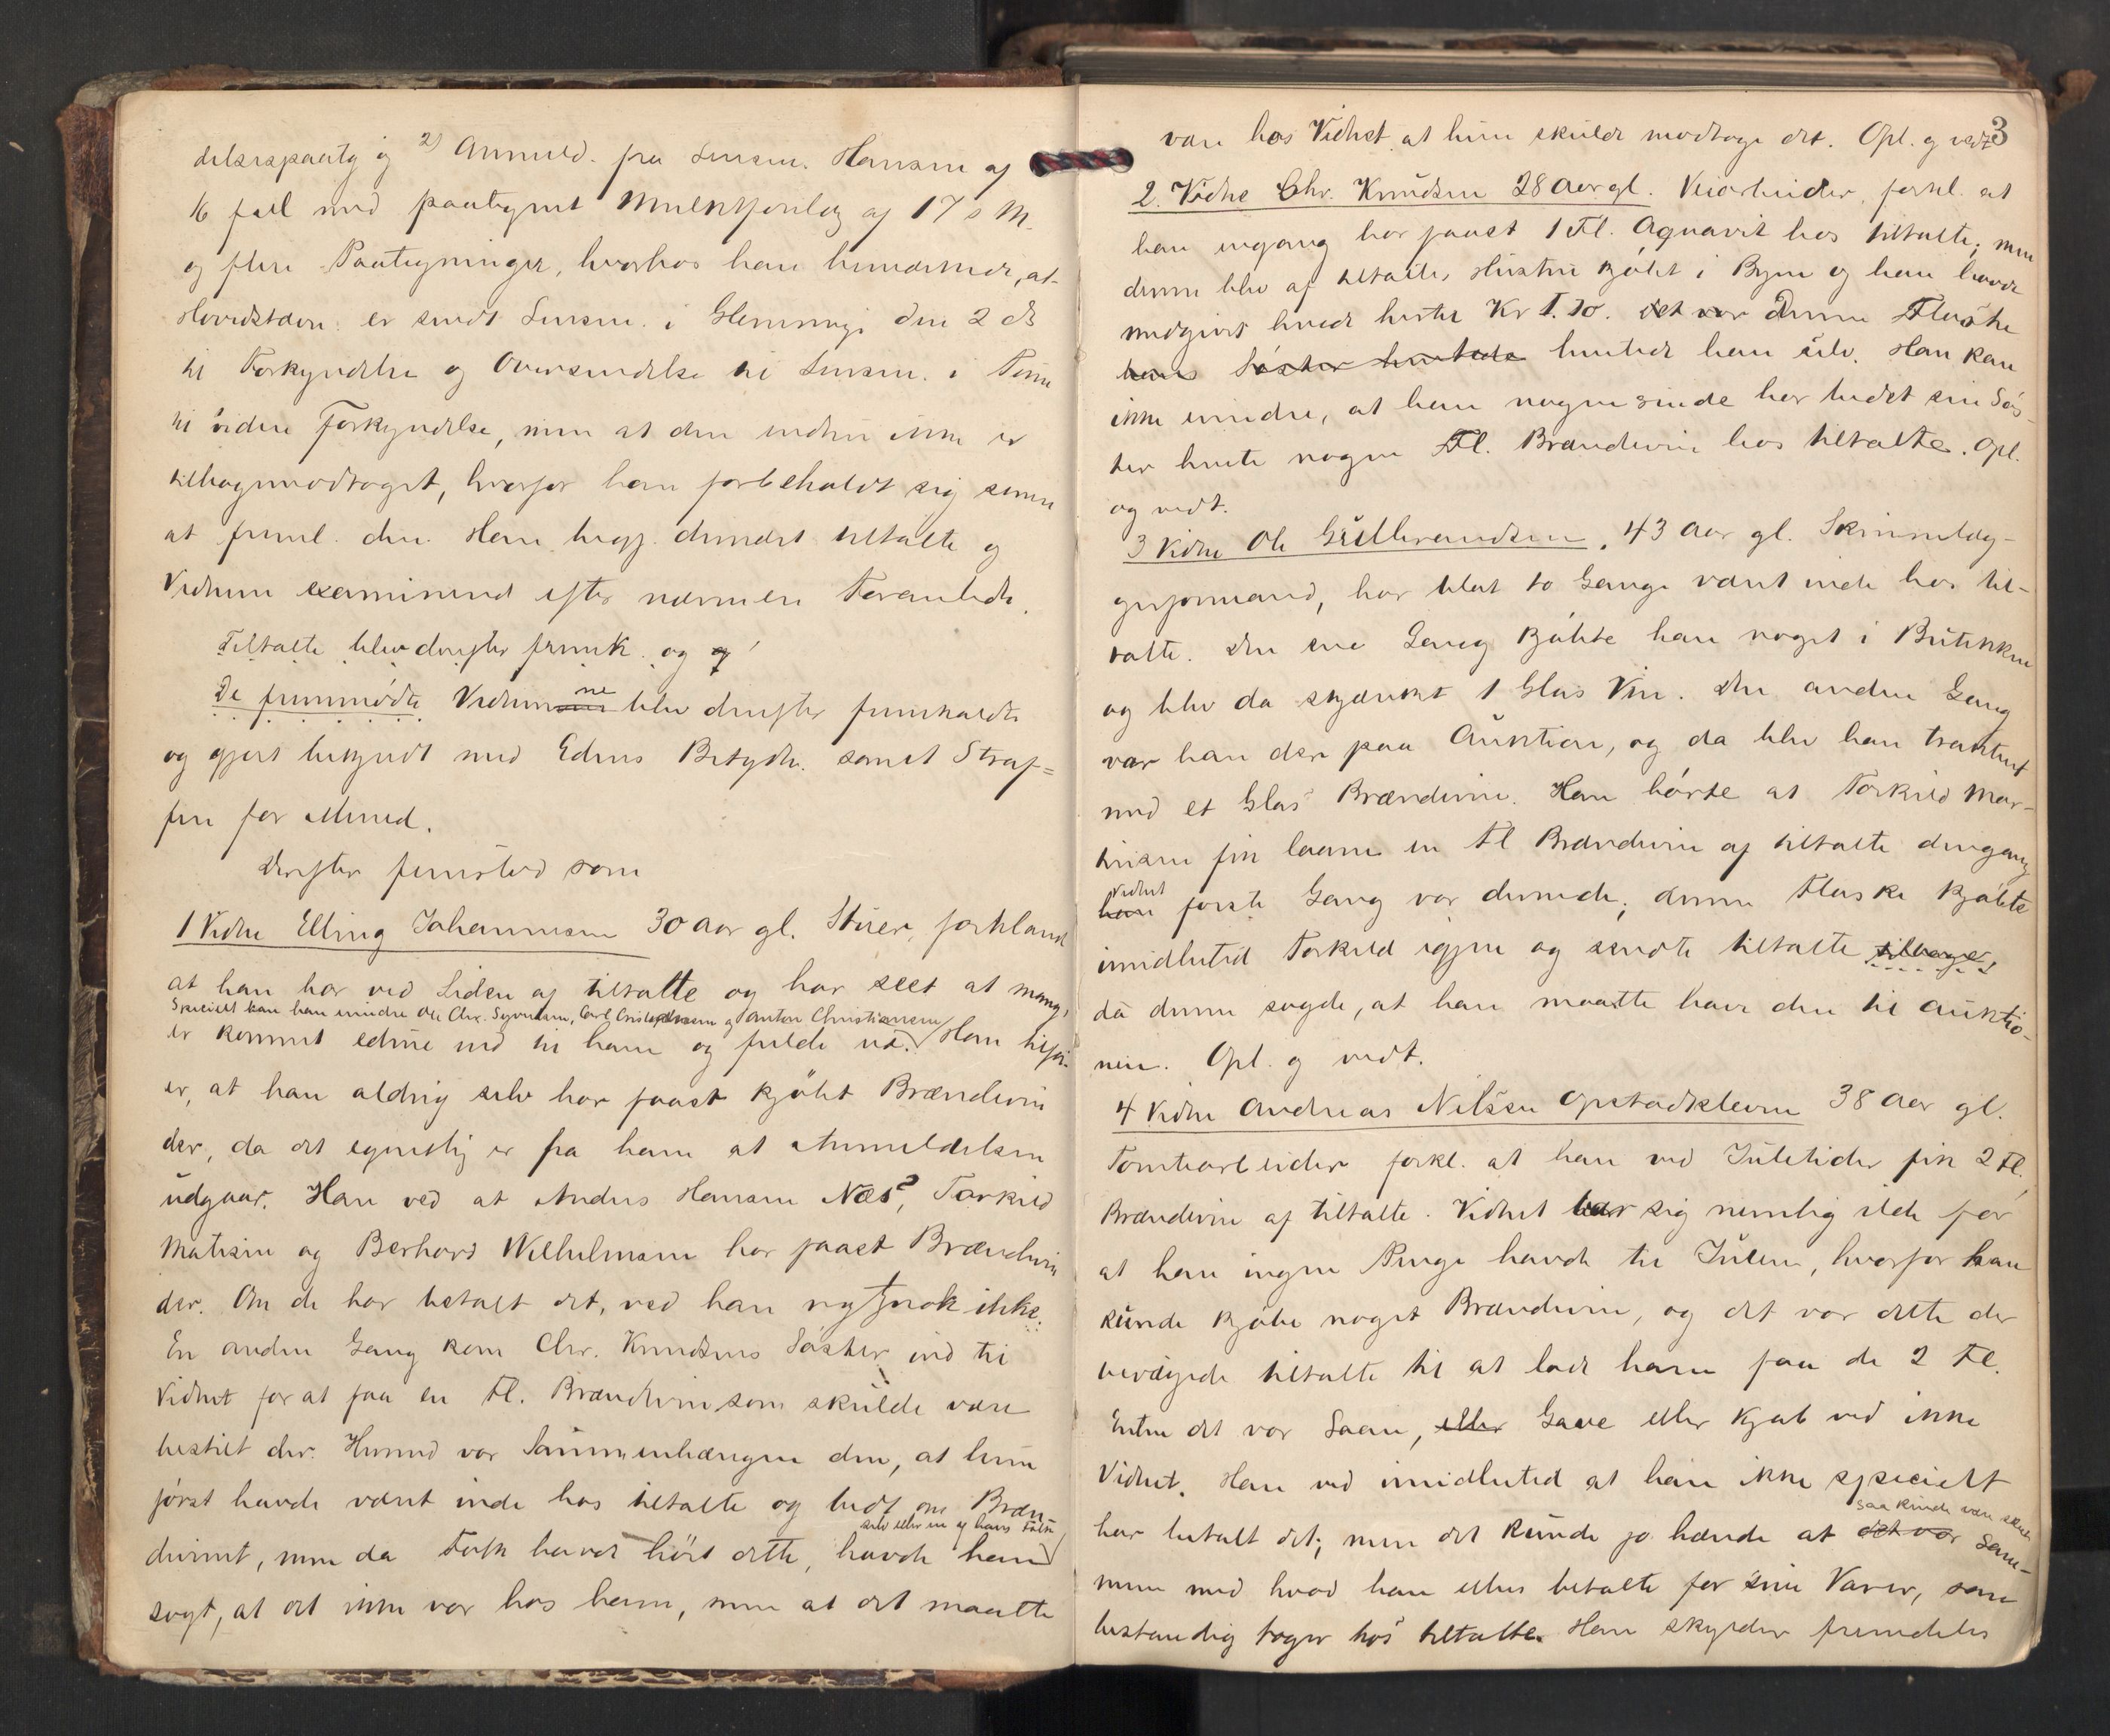 delsespaateg og 2) Anmeld. fra Lensm. Hansen af
16 fell med paategnet Mulktforelæg af 17 s M.
og flere Paategninger, hvorhos han bemærker, at
Hovedstævn. er sendt Lensm. i Glemminge den 2 ds
til Forkyndelse og Oversendelse til Lensm. i Tune
til videre Forkyndelse, men at den endnu ikke er
tilbagemodtaget, hvorfor han forbeholdt sig senere
at freml. den. Han begj. dernæst tiltalte og
Vidnerne examinered efter nærmere Foranledn.
Tiltalte blev derefter fremk. og
De fremmødte Vidnerne blev derefter fremkaldte
og gjort bekjendt med Edens Betydn. samt Straf=
fen for Mened.
Derefter fremstod som
1 Vidne Elling Johannesen 30 aar gl. Stuer, forklared
at han bor ved Siden af tiltalte og har seet at mange
Specielt kan han mindre Ole Chr. Syversen, Carl Cristophersen og Anton Christiansen
er kommet edrue ind til ham og fulde ud. Han tilføi-
er, at han aldrig selv har faaet kjøbt Brændevin
der, da det egentlig er fra ham at Anmeldelsen
udgaar. Han ved at Anders Hansen Næs?, Torkild
Matisen og Berhard Wilhelmsen har faaet Brændevin
der. Om de har betalt det, ved han nøgt nok ikke.
En anden Gang kom Chr. Knudsens Søster ind til
Vidnet for at faa en Fl. Brændevin som skulde være
bestilt der. Hermed var Sammenhængen den, at hun
først havde været inde hos tiltalte og bedt om Bræn-
selv eller en af hans Folk
devinet, men da Folk havde hørt dette, havde han
sagt, at det ikke var hos ham, men at det maatte
3
være hos Vidnet at hun skulde modtage det. Opl. og vedt.
2. Vidne Chr. Knudsen 28 Aar gl. Veiarbeider, forkl. at
han engang har faaet 1 Fl. Aqvavit hos tiltalte; men
denne blev af tiltaltes Hustru kjøbt i Byen og han havde
medgivet hende hertil Kr 1.10. Det var Denne Flaske
hans Søster hentede hentede han selv. Han kan
ikke mindre, at han nogensinde har bedet sin Søs-
ter hente nogen Fl. Brændevin hos tiltalte. Opl.
og vedt.
3 Vidne Ole Gulbrandsen, 43 Aar gl. Skinnelæg-
gerformand, har blot to Gange været inde hos til-
talte. Den ene Gang kjøbte han noget i Butikken
og blev da skjænket 1 Glas Vin. Den anden Gang
var han der paa Auktion, og da blev han trakteret
med et Glas Brændevin. Han hørte at Torkild Mar-
tinsen fik laane en Fl Brændevin af tiltalte dengang
Vidnet
han første Gang var dernede; denne Flaske kjøbte
imidlertid Torkild igjen og sendte tiltalte tilbage,
da denne sagde, at han maatte have den til Auktio-
nen. Opl. og vedt.
4 Vidne Andreas Nilsen Opstadkleven 38 Aar gl.
Tomtearbeider forkl. at han ved Juletider fik 2 Fl.
Brændevin af tiltalte. Vidnet bar sig nemlig ilde for
at han ingen Penge havde til Julen, hvorfor han
kunde kjøbe noget Brændevin, og det var dette der
bevægede tiltalte til at lade ham faa de 2 Fl.
Enten det var Laan, eller Gave eller Kjøb ved ikke
Vidnet. Han ved imidlertid at han ikke specielt
saa kunde være skeet
har betalt det; men det kunde jo hænde at det var Sam-
men med hvad han ellers betalte for sine Varer, som
bestandig tages hos tiltalte. Han skylder fremdeles